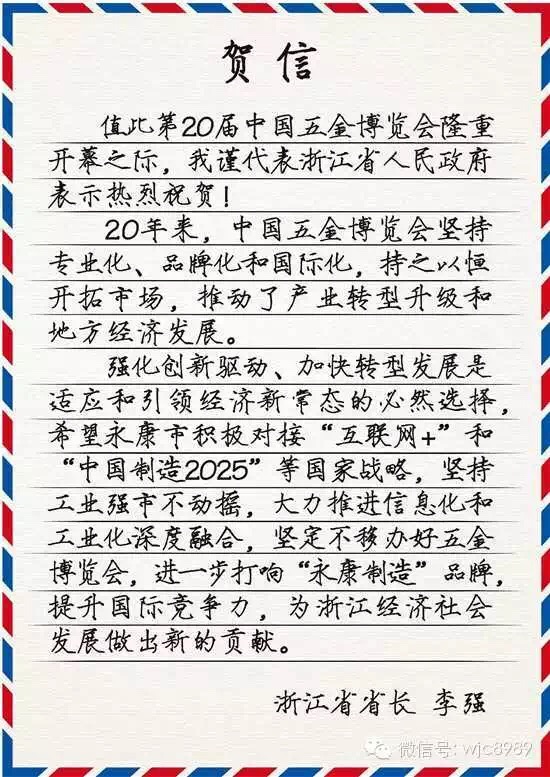 贺信
值此第20届中国五金博览会隆重
开幕之际，我谨代表浙江省人民政府
表示热烈祝贺！
20年来，中国五金博览会坚持
专业化、品牌化和国际化，持之以恒
开拓市场，推动了产业转型升级和
地方经济发展。
强化创新驱动、加快转型发展是
适应和引领经济新常态的必然选择，
希望永康市积极对接“互联网+”和
“中国制造2025”等国家战略，坚持
工业强市不动摇，大力推进信息化和
工业化深度融合，坚定不移办好五金
博览会，进一步打响“永康制造”品牌，
提升国际竞争力，为浙江经济社会
发展做出新的贡献。
浙江省省长 李强
微信号: wjc8989